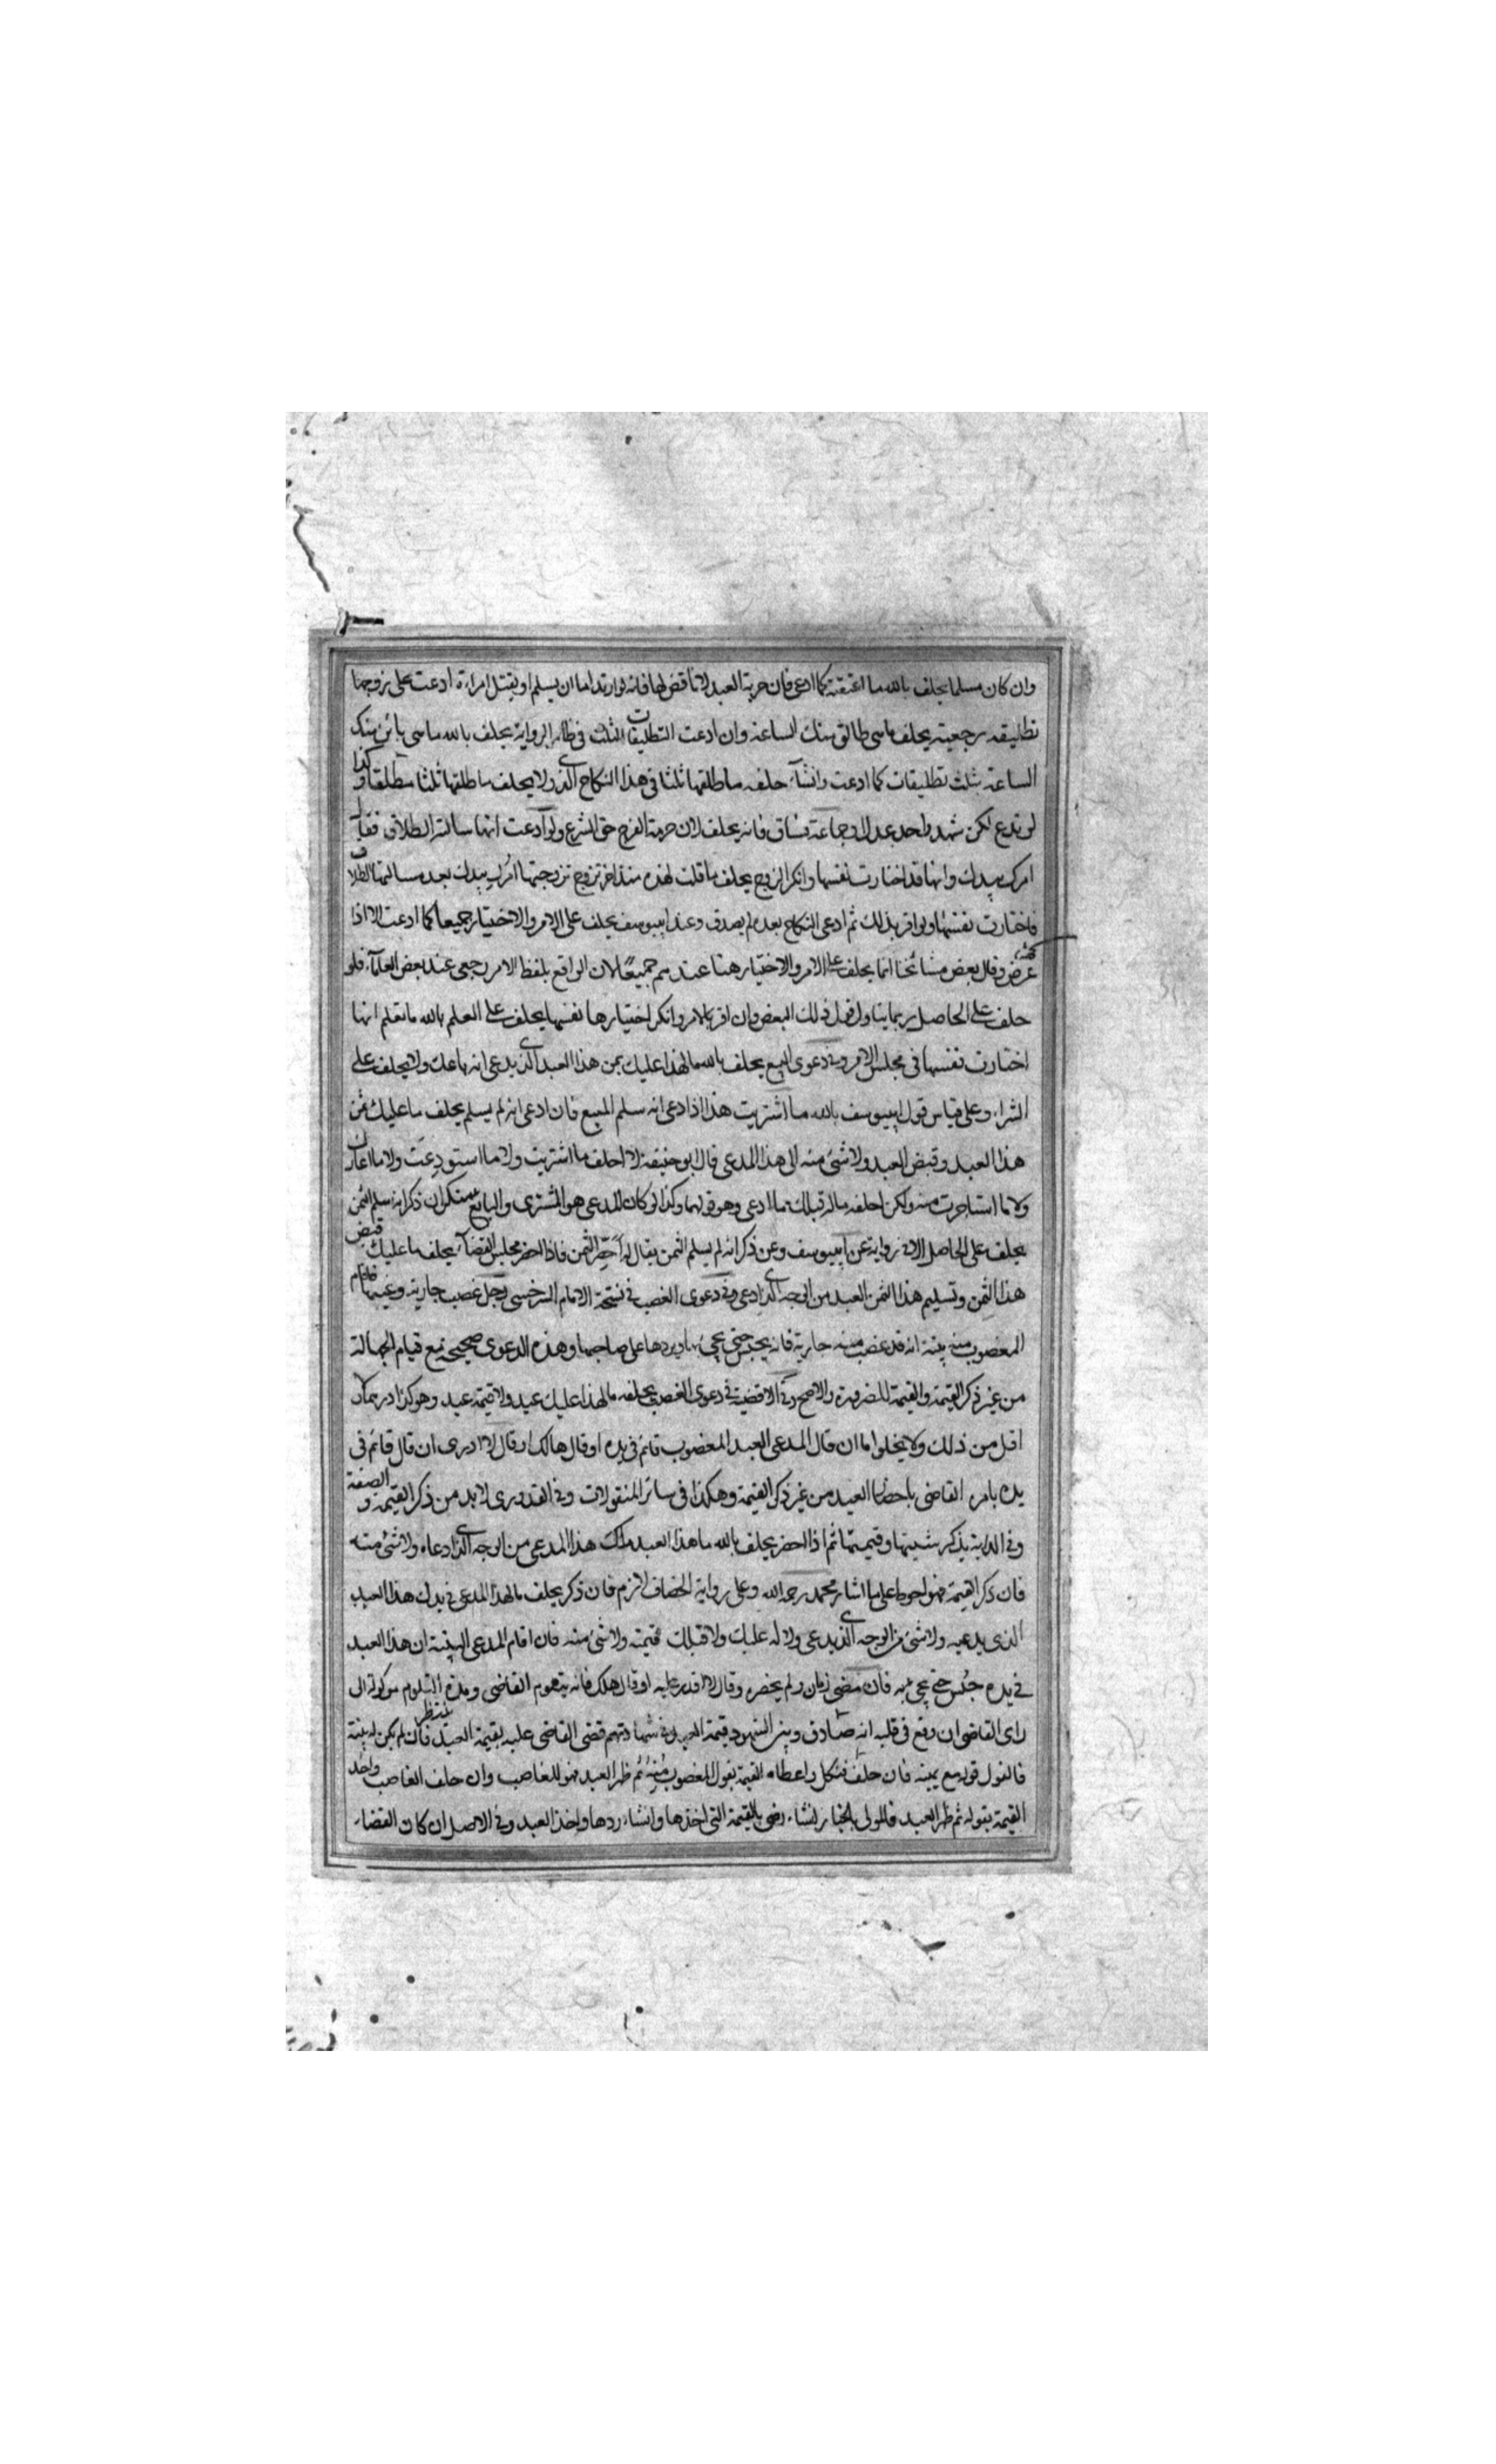 وان كان مسلما يحلف بالله ما اعتقته كما ادعى فان حرية العبد لا تناقض لها فانه لو ارتد اما ان يسلم او يقتل امراءة ادعت على زوجها
تطليقه رجعية يحلف ما هى طالق منك الساعة وان ادعت التطليقات الثلث فى ظاهر الرواية يحلف بالله ما هى بائن منك
الساعة بثلث تطليقات كما ادعت وانشآء حلفه ما طلقها ثلثا فى هذا النكاح الذى ولا يحلف ما طلقها ثلثا مطلقا وكذا
لو تدع لكن شهد واحد عدل او جماعة فساق فانه يحلف لان حرمة الفرج حق الشرع ولو ادعت انها سالته الطلاق فقال
امرك بيدك وانها قد اختارت نفسها وانكر الزوج يحلف ما قلت لهذه منذ اخر تزوج تزوجتها امرك بيدك بعد مسالتها الطلاق
فاختارت نفسها ولو اقر بذلك ثم ادعى النكاح بعده لم يصدق وعند ابيوسف يحلف على الامر والاختيار جميعا كما ادعت الا اذا
عرض وقال بعض مشائخنا انما يحلف على الامر والاختيار هنا عندهم جميعًا لان الواقع بلفظ الامر رجعى عند بعض العلماء فلو
حلف على الحاصل ربما يتاول قول ذلك البعض وان اقر بالامر وانكر اختيارها نفسها يحلف على العلم بالله ما تعلم انها
اختارت نفسها فى مجلس الامر وفى دعوى البيع يحلف بالله ما لهذا عليك ثمن هذا العبد الذى يدعى انه باعك ولا يحلف على
الشراء وعلى قياس قول ابيوسف بالله ما اشتريت هذا اذا ادعى انه سلم المبيع فان ادعى انه لم يسلم يحلف ما عليك ثمن
هذا العبد وقبض العبد ولا شئ منه الى هذا المدعى قال ابو حنيفة لا احلف ما اشتريت ولا ما استودعت ولا ما اعارك
ولا ما استاجرت منه ولكن احلفه ماله قبلك ما ادعى وهو قولهما وكذا لو كان المدعى هو المشترى والبايع منكر ان ذكر انه سلم الثمن
يحلف على الحاصل الا فى رواية عن ابيوسف وعن ذكر انه لم يسلم الثمن يقال له احضر الثمن فاذا احضر مجلس القضآء يحلف ما عليك قبض
هذا الثمن وتسليم هذا الثمن العبد من الوجه الذى ادعى وفى دعوى الغصب فى نسخة الامام السرخسى رجل غصب جارية وغيبها فاقام
المغصوب منه بينة انه قد غصب منه جارية فانه يحبس حتى يجئ بها ويردها على صاحبها وهذه الدعوى صحيحة مع قيام الجهالة
من غير ذكر القيمة والقيمة للضرورة والاصح وفى الاقضية فى دعوى الغصب يحلفه ما لهذا عليك عبد ولا قيمة عبد وهو كذا درهما ولا
اقل من ذلك ولا يخلوا اما ان قال المدعى العبد المغصوب قائم فى يده او قال هالك او قال لا ادرى ان قال قائم فى
يده يامره القاضى باحضار العبد من غير ذكر القيمة وهكذا فى سائر المنقولات وفى القدورى لا بد من ذكر القيمة والصفة
وفى الدابة يذكر شيتها وقيمتها ثم اذا احضر يحلف بالله ما هذا العبد ملك هذا المدعى من الوجه الذى ادعاه ولا شئ منه
فان ذكر القيمة فهو احوط على ما اشار محمد رحمه الله وعلى رواية الخصاف لازم فان ذكر يحلف ما لهذا المدعى فى يدك هذا العبد
الذى يدعيه ولا شئ من الوجه الذى يدعى ولا له عليك ولا قبلك قيمته ولا شئ منه فان اقام المدعى البينة ان هذا العبد
فى يده حبس حتى يجئ به فان مضى زمان ولم يحضره وقال لا اقدر عليه او قال هلك فانه يتلوم القاضى ومدة التلوم موكولة الى
راى القاضى ان وقع فى قلبه انه صادق وبين الشهود قيمة العبد فى شهادتهم قضى القاضى عليه بقيمة العبد فان لم يكن له بينة
فالقول قوله مع يمينه فان حلف فنكل واعطاه القيمة بقول المغصوب منه ثم ظهر العبد فهو للغاصب وان حلف الغاصب واخذ
القيمة بقوله ثم ظهر العبد فالمولى بالخيار انشاء رضى بالقيمة التى اخذها وانشاء ردها واخذ العبد وفى الاصل ان كان القضاء